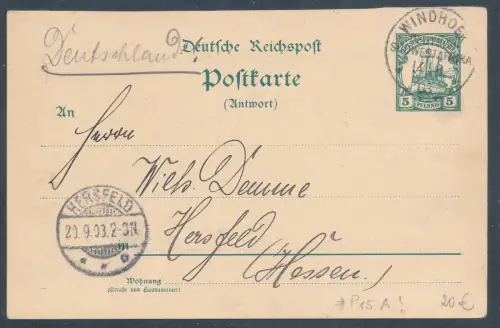 Deutschland!
Deutsche Reichspost
Postkarte
(Antwort)
An
Herrn
Wilh. Demme
Hersfeld
(Hessen.)
Wohnung
(Straße und Hausnummer)
WINDHOEK
5 PFENNIG 5
HERSFELD
20.9.03.2-3N
*P15 A!
20€